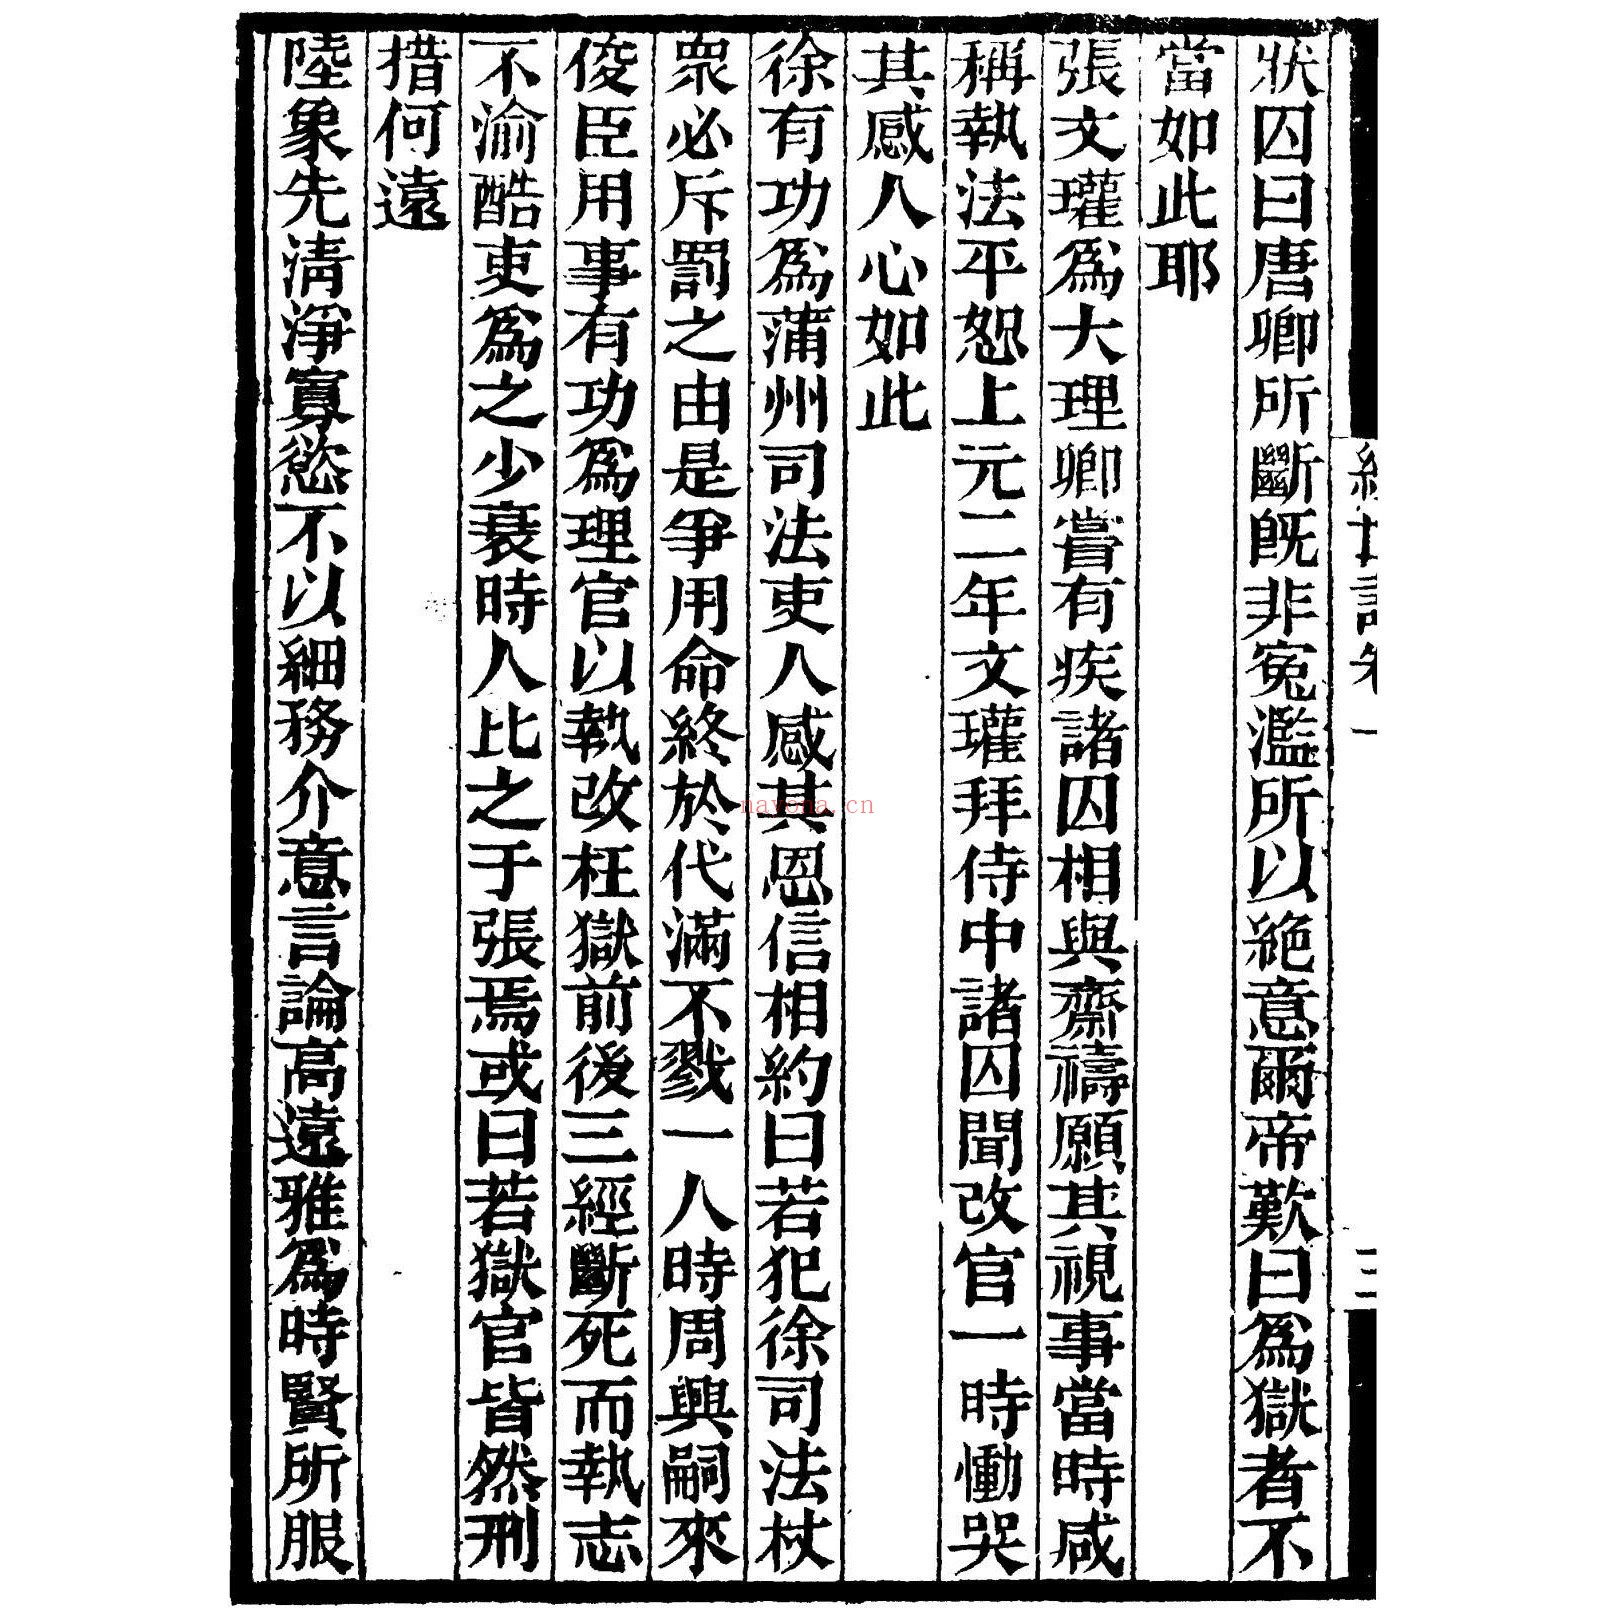 狀囚曰唐卿所斷旣非寃濫所以絕意爾帝歎曰爲獄者不
當如此耶
張文瓘爲大理卿嘗有疾諸囚相與齋禱願其視事當時咸
稱執法平恕上元二年文瓘拜侍中諸囚聞改官一時慟哭
其感人心如此
徐有功爲蒲州司法吏人感其恩信相約曰若犯徐司法杖
衆必斥罰之由是爭用命終於代滿不戮一人時周興嗣來
俊臣用事有功爲理官以執改枉獄前後三經斷死而執志
不渝酷吏爲之少衰時人比之于張焉或曰若獄官皆然刑
措何遠
陸象先清淨寡慾不以細務介意言論高遠雅爲時賢所服
三
nayona.cn